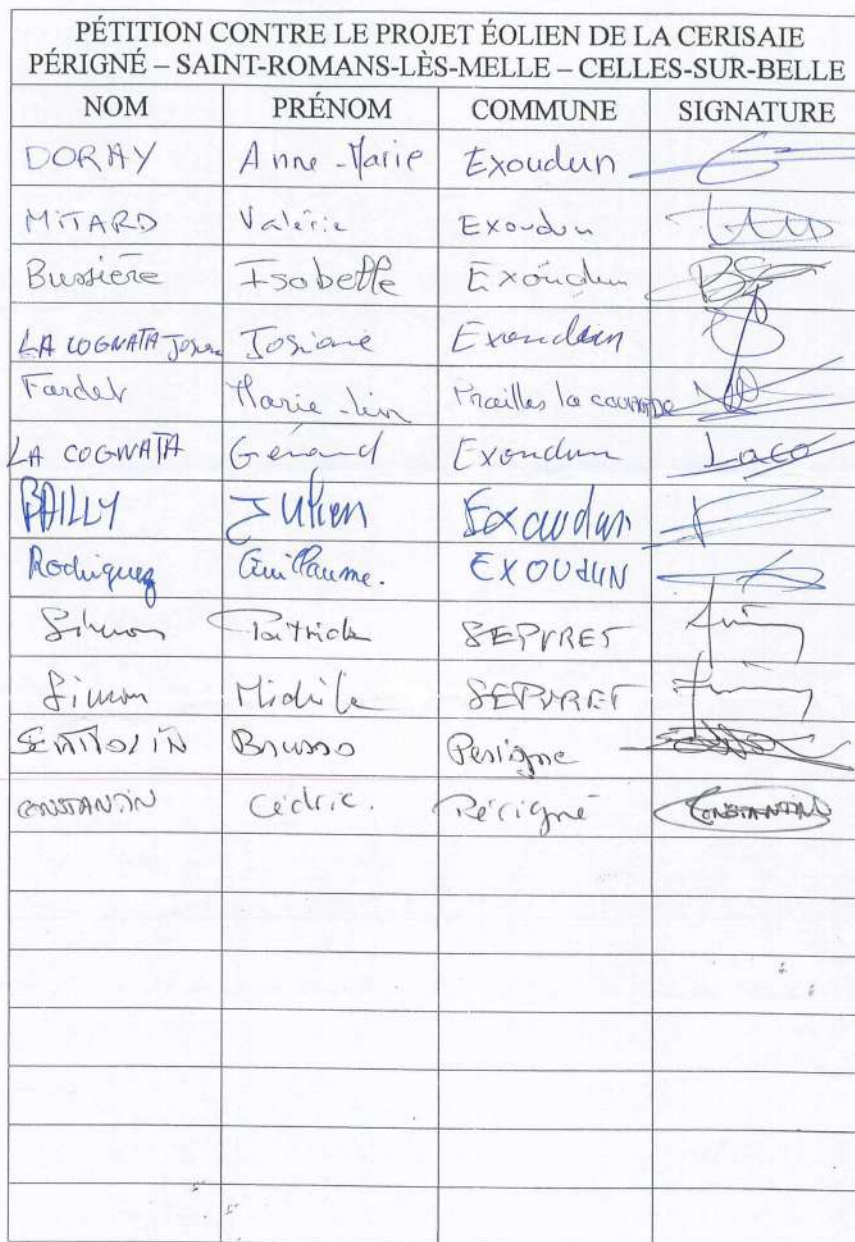 PÉTITION CONTRE LE PROJET ÉOLIEN DE LA CERISAIE
PÉRIGNÉ – SAINT-ROMANS-LÈS-MELLE – CELLES-SUR-BELLE
NOM PRÉNOM COMMUNE SIGNATURE
DORAY Anne-Marie Exoudun
MITARD Valérie Exoudun
Bussière Isabelle Exoudun
LA COGNATA Josiane Exoudun
Fardet Marie Prailles la couarde
LA COGNATA Gérard Exoudun Laco
BAILLY Julien Exoudun
Rodriguez Guillaume. EXOUdUN
Simon Patrick SEPVRET
Simon Michèle SEPVRET
Bruno Perigne
CONSTANTIN Cédric. Périgné CONSTANTIN